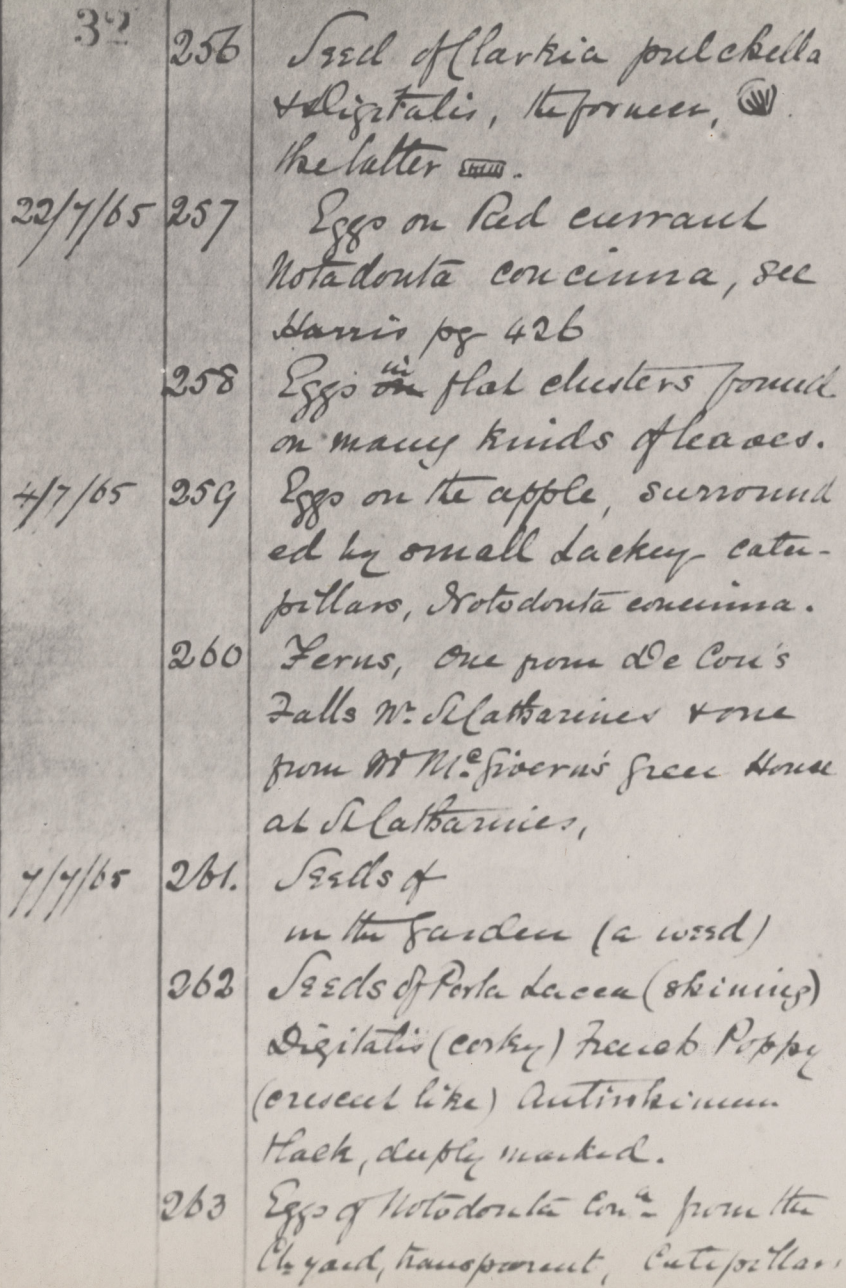 32
256 Seed of Clarkia pulchella
& Digitalis, the former,
the latter
22/7/65 257 Eggs on Red currant
Notadonta concinna, see
Harris pg 426
258 Eggs on in flat clusters found
on many kinds of leaves.
4/7/65 259 Eggs on the apple, surround
ed by small Lackey cater-
pillars, Notodonta concinna.
260 Ferns, one from De Cou's
Falls Nr. St Catharines & one
from Mr McGivern's Green House
at St Catharines,
7/7/65 261. Seeds of
in the Garden (a weed)
262 Seeds of Porta Lacca (shining)
Digitalis (corky) French Poppy
(crescent like) Antirrhinum
black, deeply marked.
263 Eggs of Notodonta Conna from the
Ch yard, transparent, Caterpillar